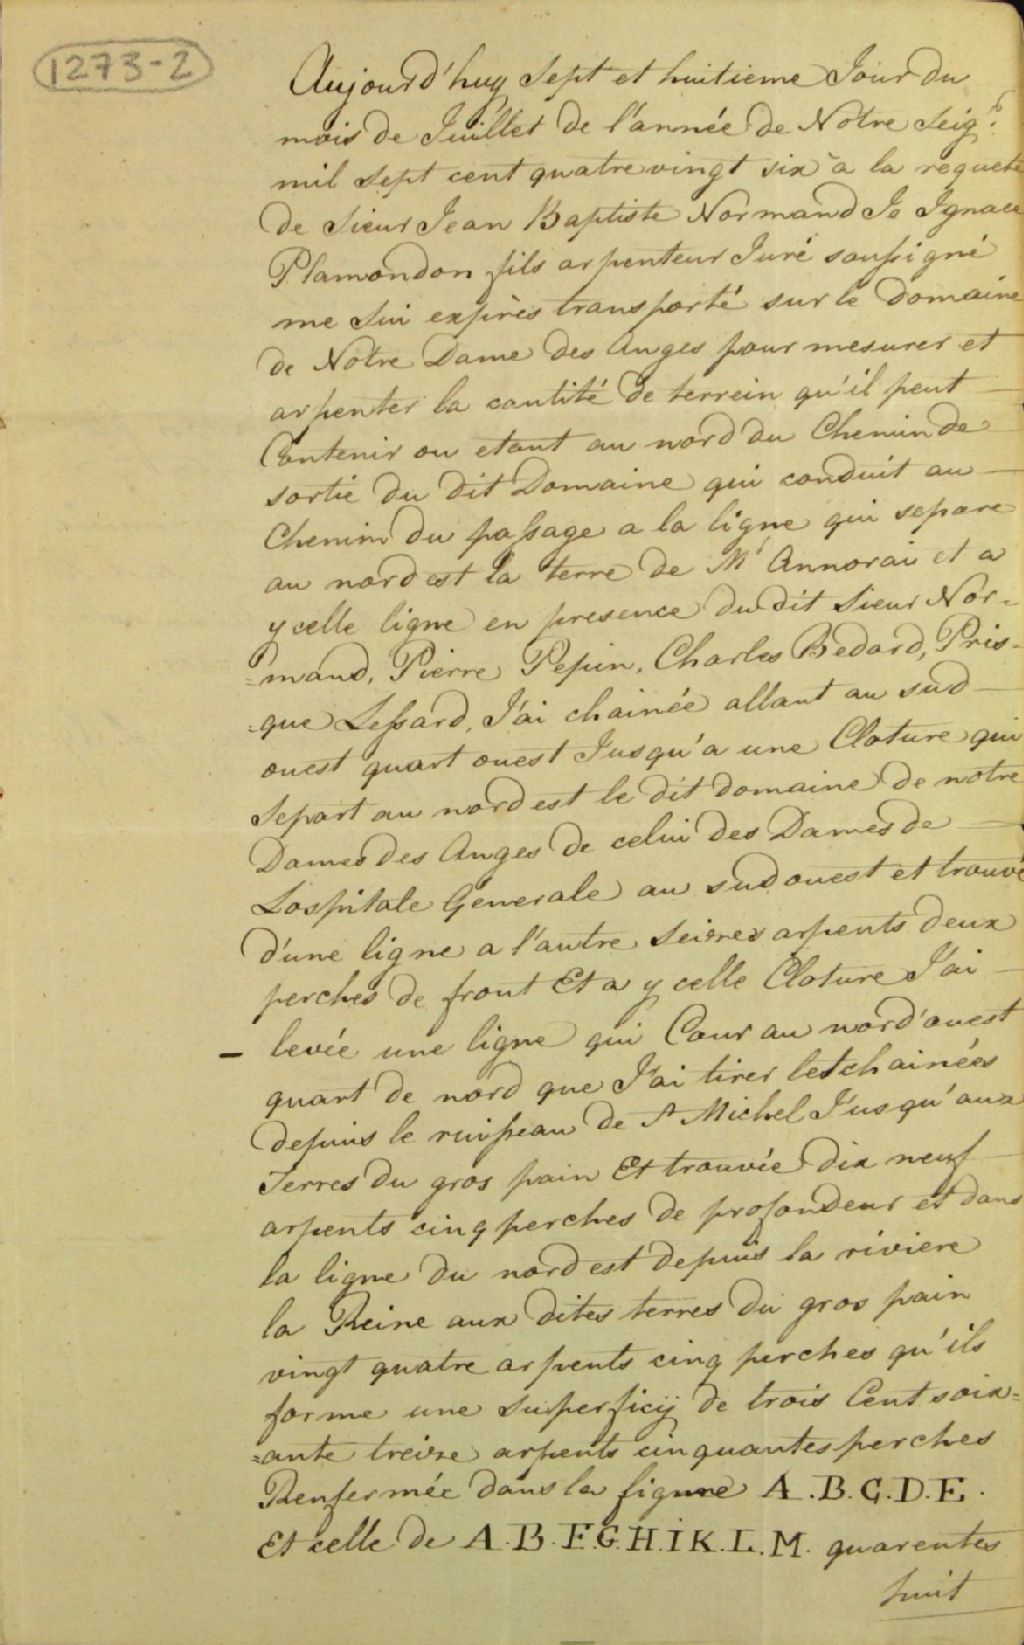 1273-2
Aujourd'huy Sept et huitieme Jour du
mois de Juillet de l'année de Notre Seigr.
mil Sept cent quatre vingt six a la requete
de Sieur Jean Baptiste Normand Je Ignace
Plamondon fils arpenteur Juré soussigné
me Sui exprès transporté sur le Domaine
de Notre Dame des Anges pour mesurer et
arpenter la cantité de terrein qu'il peut
Contenir ou etant au nord du Chemin de
sortie du dit Domaine qui conduit au
Chemin du passage a la ligne qui separe
au nord est la terre de Mr Annorai et a
y celle ligne en presence du dit Sieur Nor-
=mand, Pierre Pepin, Charles Bedard, Pris-
=que Lessard, J'ai chainée allant au sud
ouest quart ouest Jusqu'a une Cloture qui
Separt au nord est le dit domaine de notre
Dames des Anges de celui des Dames de
Lospitale Generale au sud ouest et trouvé
d'une ligne a l'autre Seizes arpents deux
perches de front Et a y celle Cloture J'ai
- levée une ligne qui Cour au nord'ouest
quart de nord que J'ai tirer et chainées
depuis le ruisseau de St Michel Jusqu'aux
Terres du gros pain Et trouvée dix neuf
arpents cinq perches de profondeur et dans
la ligne du nord est depuis la riviere
la Reine aux dites terres du gros pain
vingt quatre arpents cinq perches qu'ils
forme une superficij de trois Cent soix=
=ante treize arpents cinquantes perches
Renfermée dans la figure A.B.C.D.E.
Et celle de A.B.F.G.H.I.K.L.M. quarentes
huit